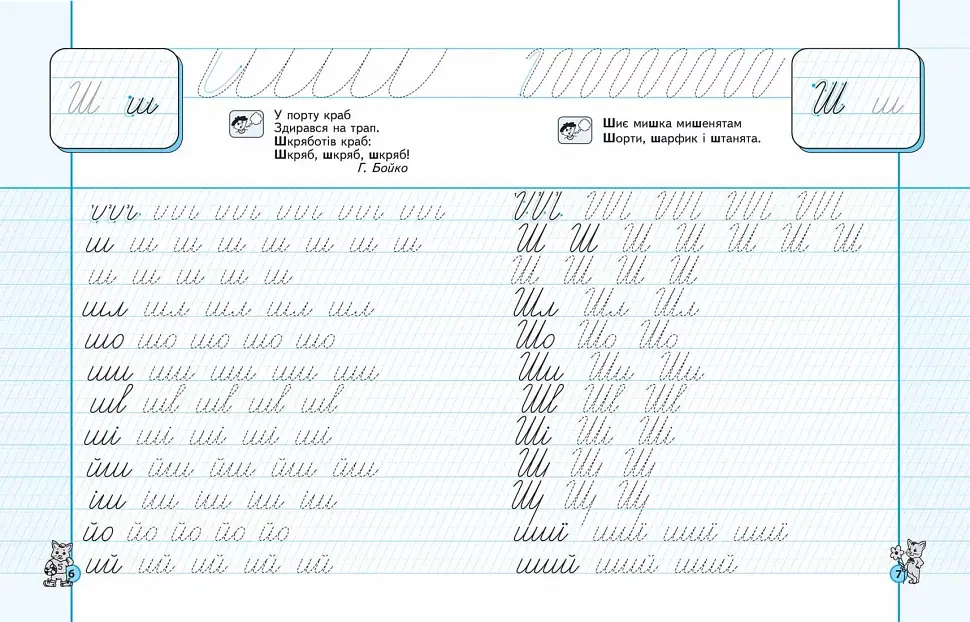 Ш ш
У порту краб
Здирався на трап.
Шкряботів краб:
Шкряб, шкряб, шкряб!
Г. Бойко
ш ш ш ш ш ш ш ш
ш ш ш ш ш
шл шл шл шл шл
шо шо шо шо шо
ши ши ши ши ши
шв шв шв шв шв
ші ші ші ші ші
йш йш йш йш йш
іш іш іш іш іш
йо йо йо йо йо
ий ий ий ий ий
6
Ш ш
Шиє мишка мишенятам
Шорти, шарфик і штанята.
Ш Ш Ш Ш Ш Ш Ш
Ш Ш Ш Ш
Шл Шл Шл
Шо Шо Шо
Ши Ши Ши
Шв Шв Шв
Ші Ші Ші
7